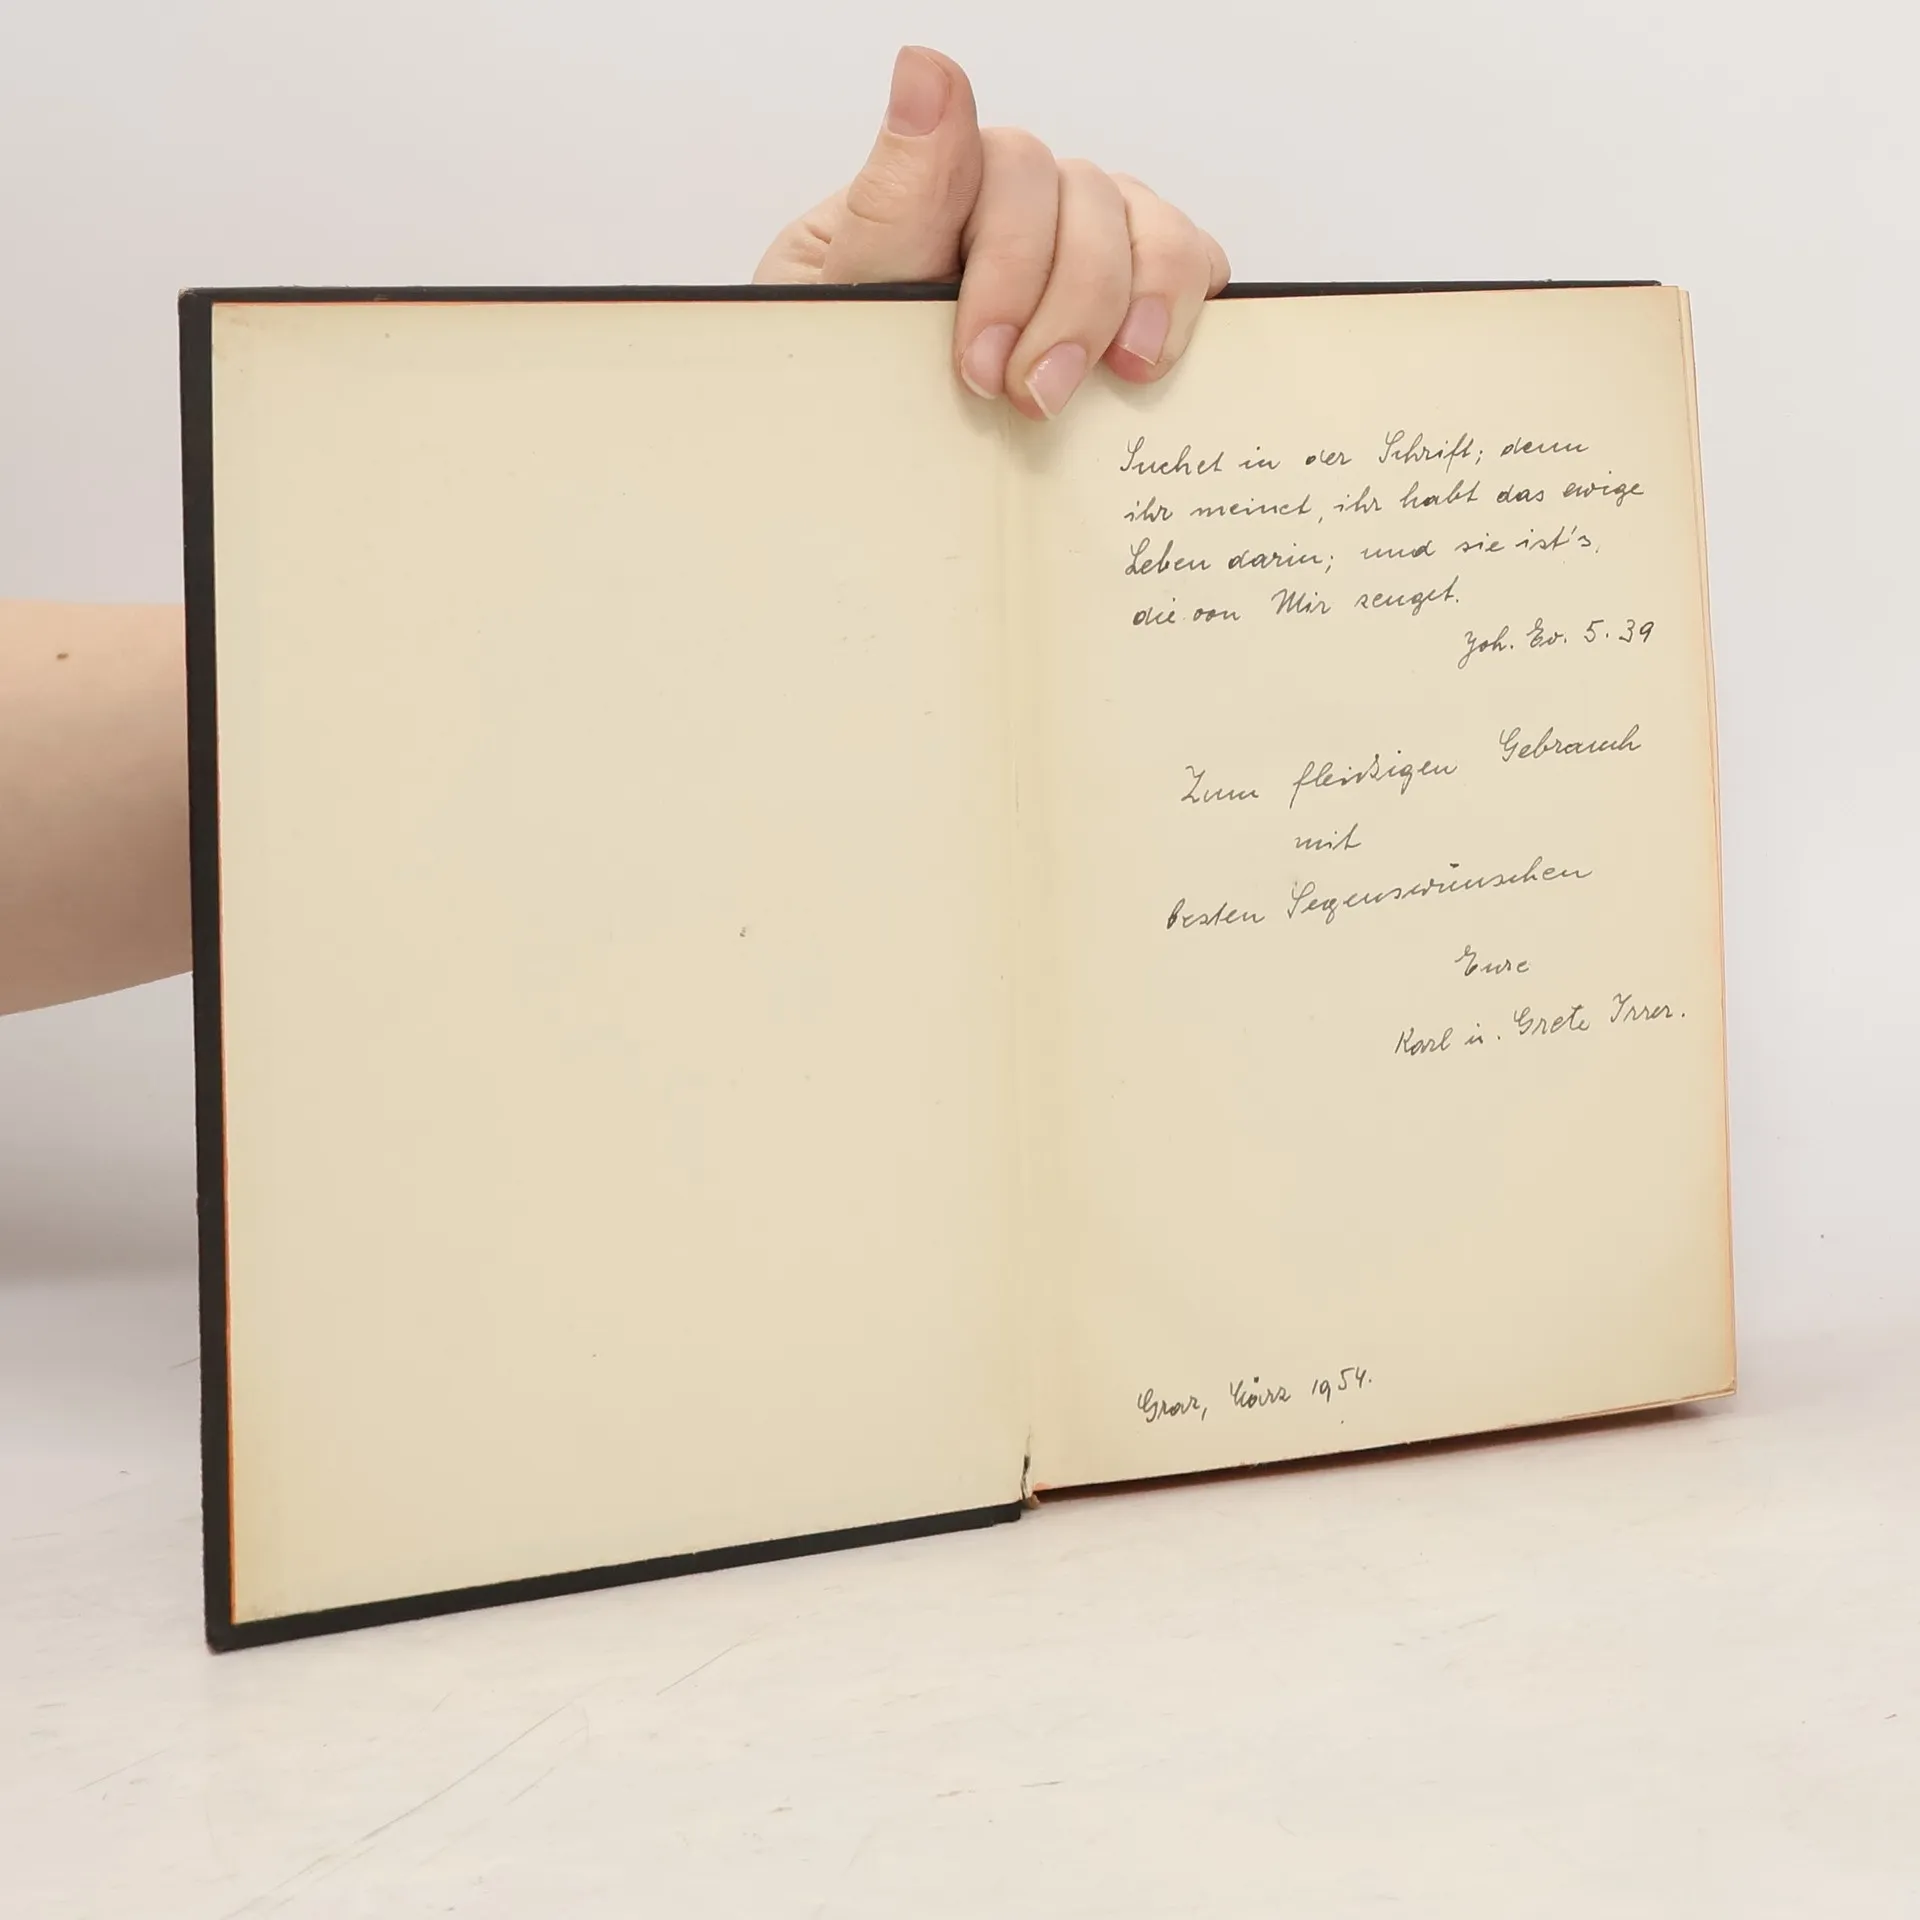 Suchet in der Schrift; denn
ihr meinet, ihr habt das ewige
Leben darin; und sie ist's,
die von Mir zeuget.
Joh. Ev. 5. 39
Zum fleißigen Gebrauch
mit
besten Segenswünschen
Eure
Karl u. Grete Irrer.
Graz, März 1954.